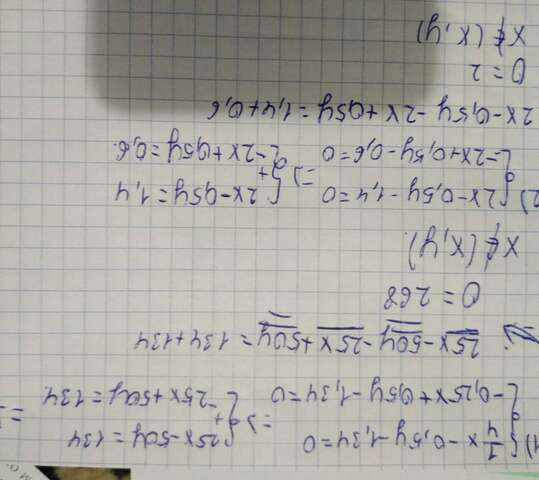 1) { 1/4 x - 0,5y - 1,34 = 0 => { 25x - 50y = 134
- 0,25x + 0,5y - 1,34 = 0 + - 25x + 50y = 134 =>
=> 25x - 50y - 25x + 50y = 134 + 134
0 = 268
x ∉ (x, y)
2) { 2x - 0,5y - 1,4 = 0 => { 2x - 0,5y = 1,4
- 2x + 0,5y - 0,6 = 0 + - 2x + 0,5y = 0,6.
2x - 0,5y - 2x + 0,5y = 1,4 + 0,6
0 = 2
x ∉ (x, y)